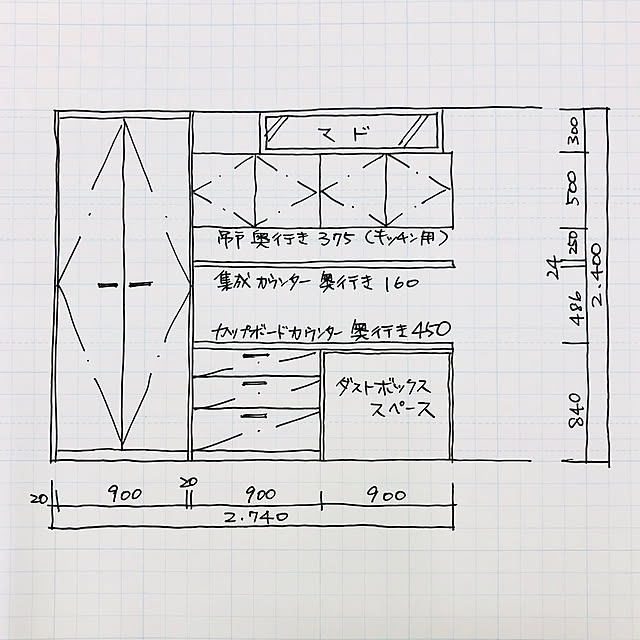 マド
吊戸 奥行き 375 (キッチン用)
集成カウンター 奥行き 160
カップボードカウンター 奥行き 450
ダストボックス
スペース
300
500
250
24
486
840
2.400
20
900
20
900
900
2.740